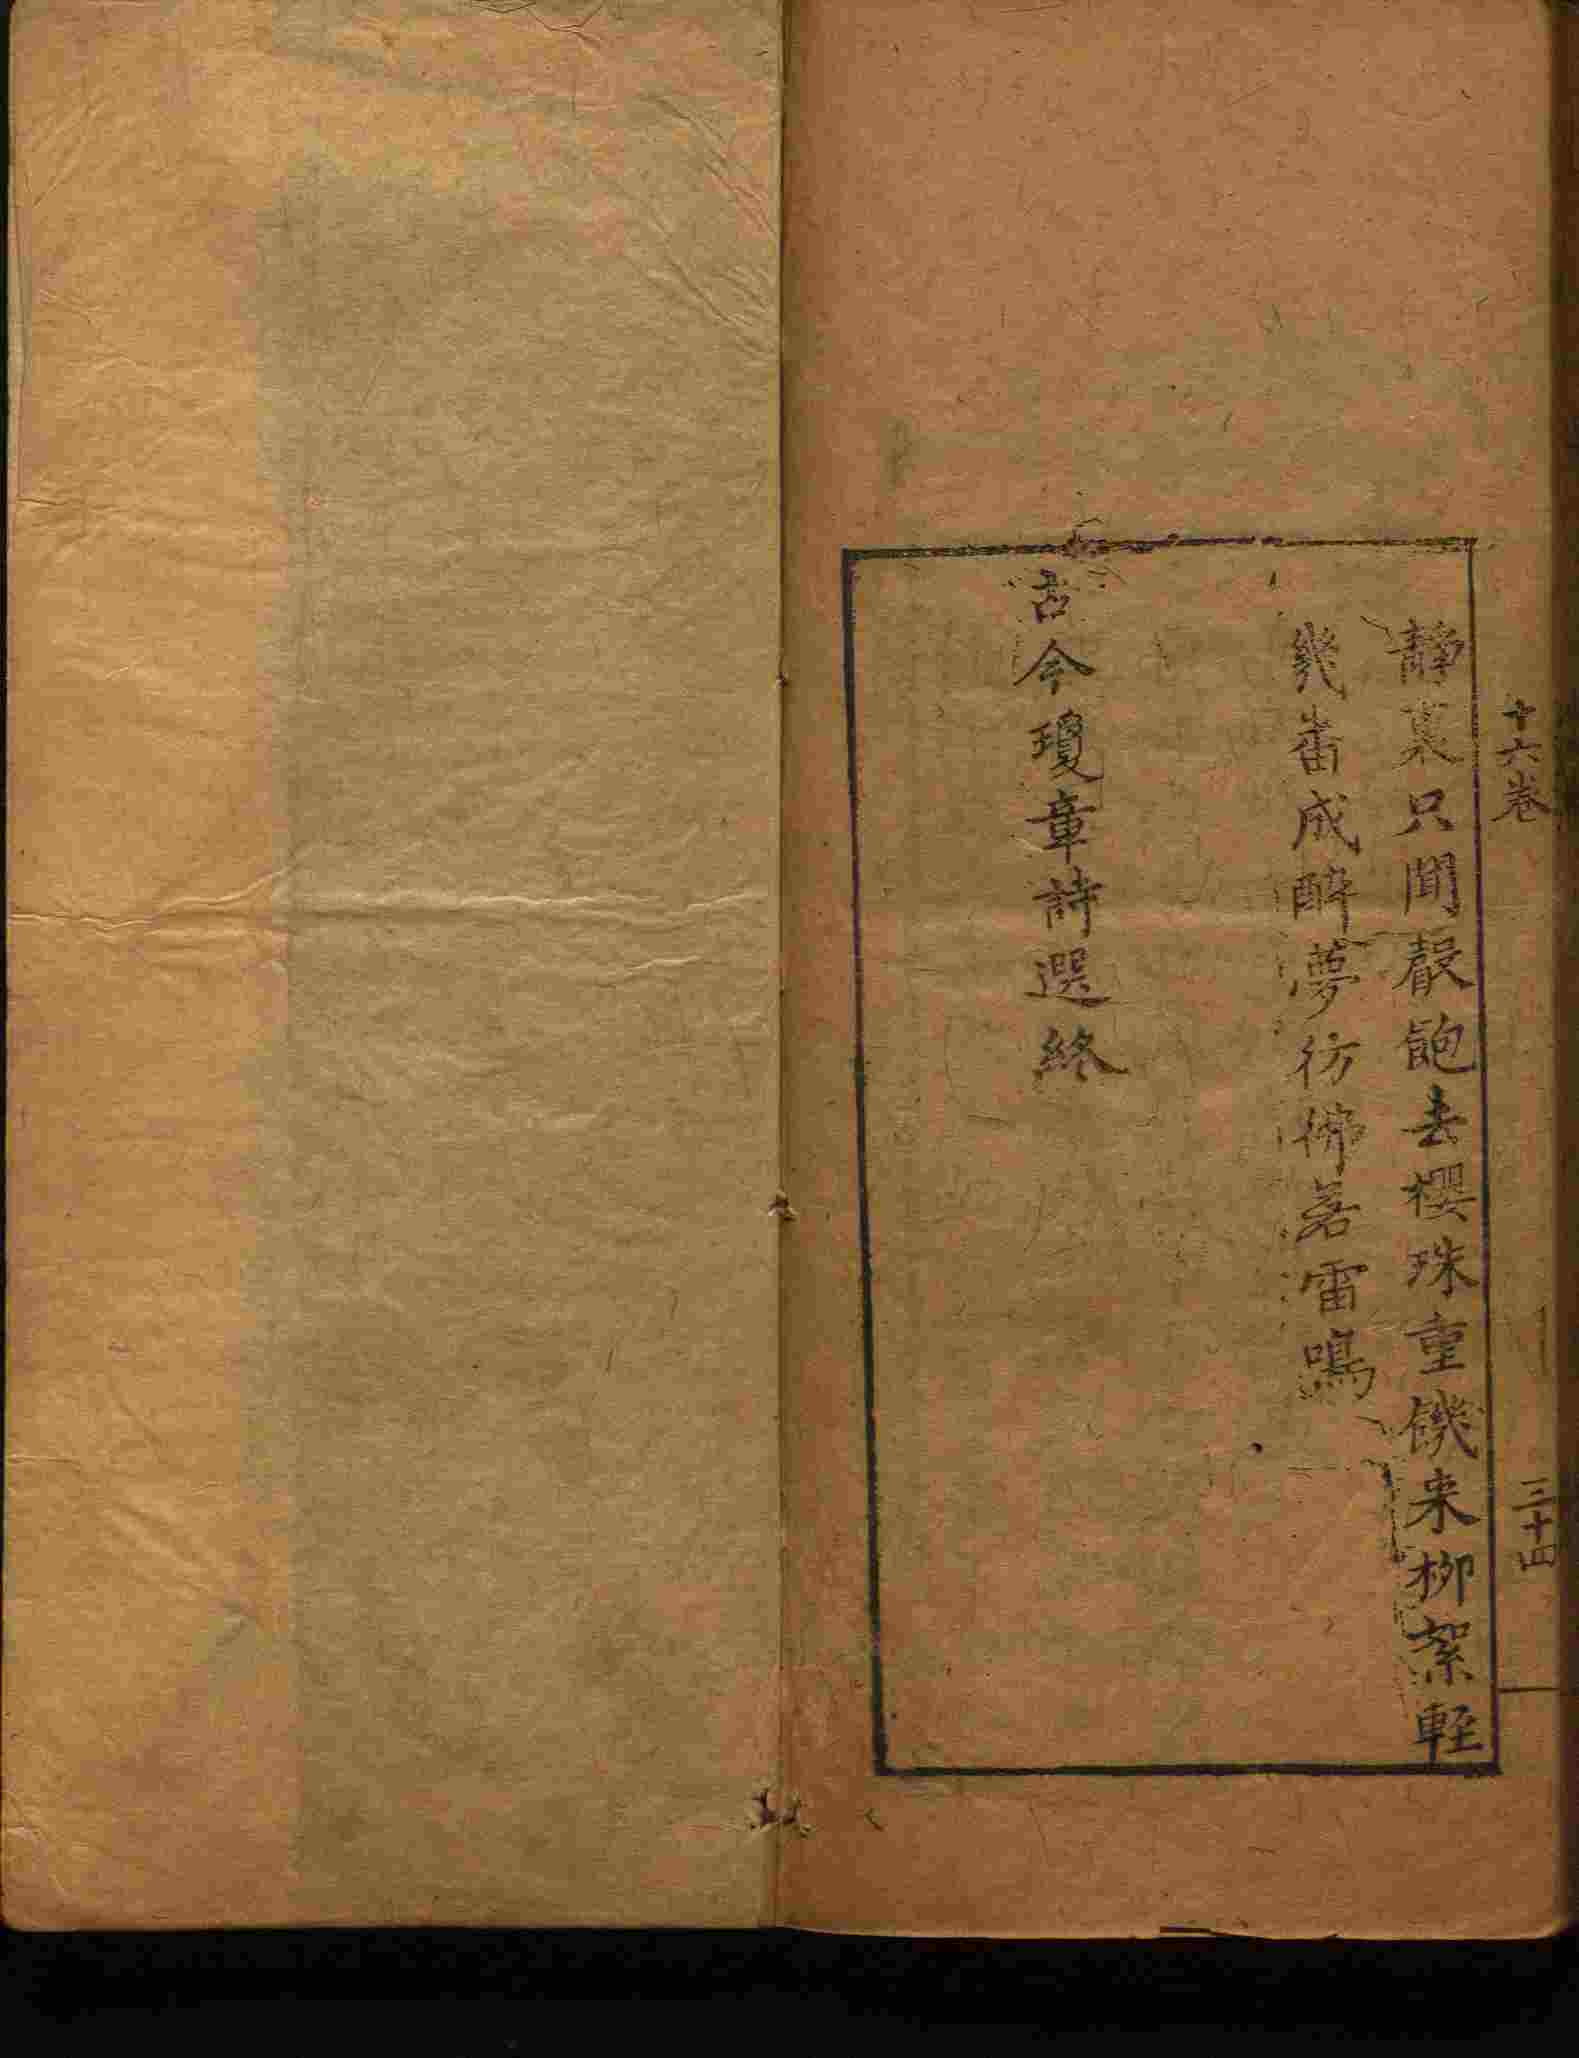 十六卷
三十四
静裏只聞聲飽去櫻珠重饑来柳絮輕
幾番成醉夢彷彿若雷鳴
古今瓊章詩選終